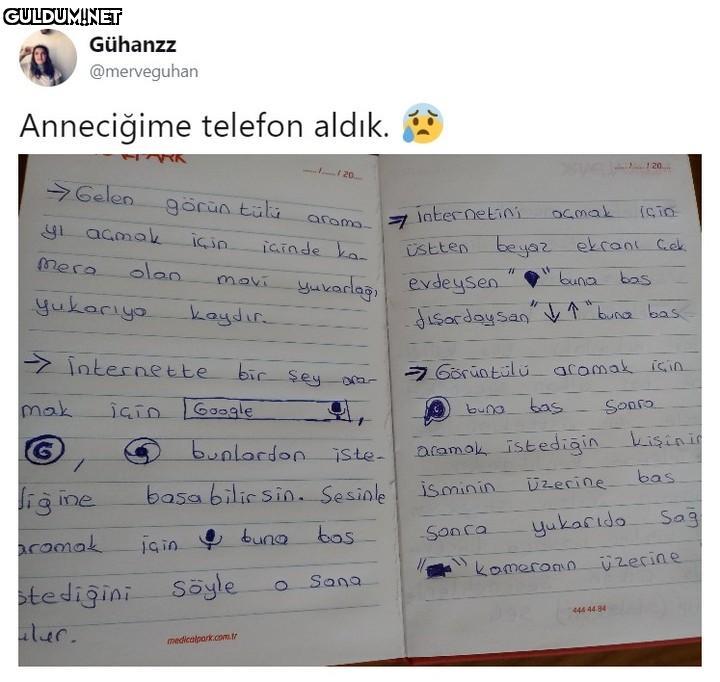 GULDUM.NET
Gühanzz
@merveguhan
Anneciğime telefon aldık. 😰
.../.../20...
→ Gelen görüntülü arama-
yı açmak için içinde ka-
mera olan mavi yuvarlağı
yukarıya kaydır.
→ İnternette bir şey ara-
mak için Google ,
G , bunlardan iste-
diğine basabilirsin. Sesinle
aramak için buna bas
istediğini söyle o sana
ulur.
medicalpark.com.tr
.../.../20...
→ İnternetini açmak için
üstten beyaz ekranı çek
evdeysen " " buna bas
dışardaysan "↓↑" buna bas
→ Görüntülü aramak için
buna bas sonra
aramak istediğin kişinin
isminin üzerine bas
sonra yukarıda sağ
" " kameranın üzerine
444 44 84